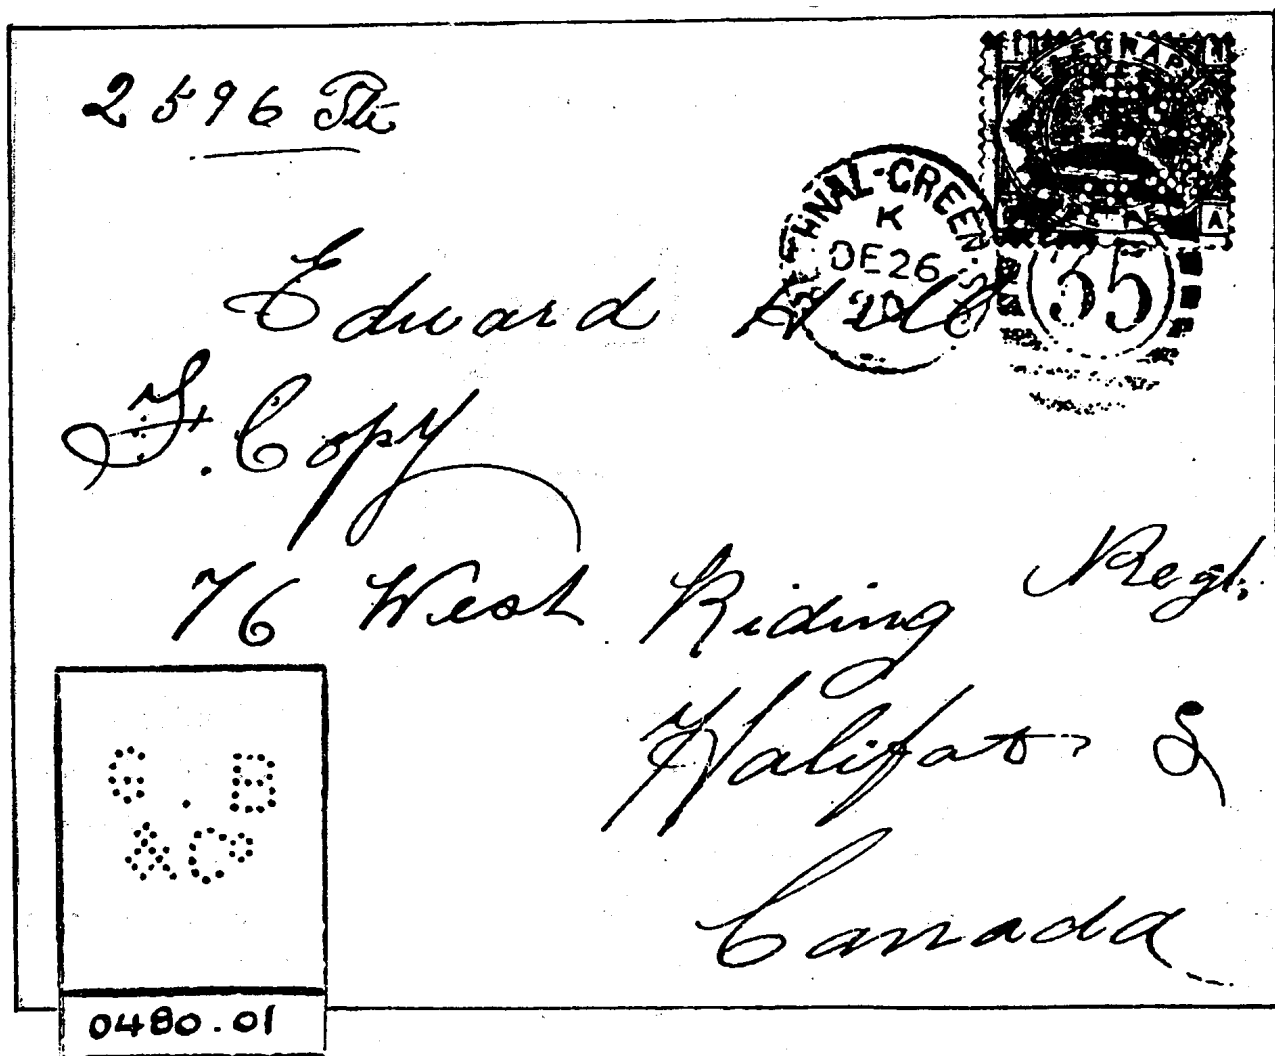 2596 Pte
TELEGRAPH
A
BETHNAL-GREEN
K
DE26
35
Edward
F. Copy
76 West Riding Regt.
Halifax
Canada
G . B
& Co
0480.01